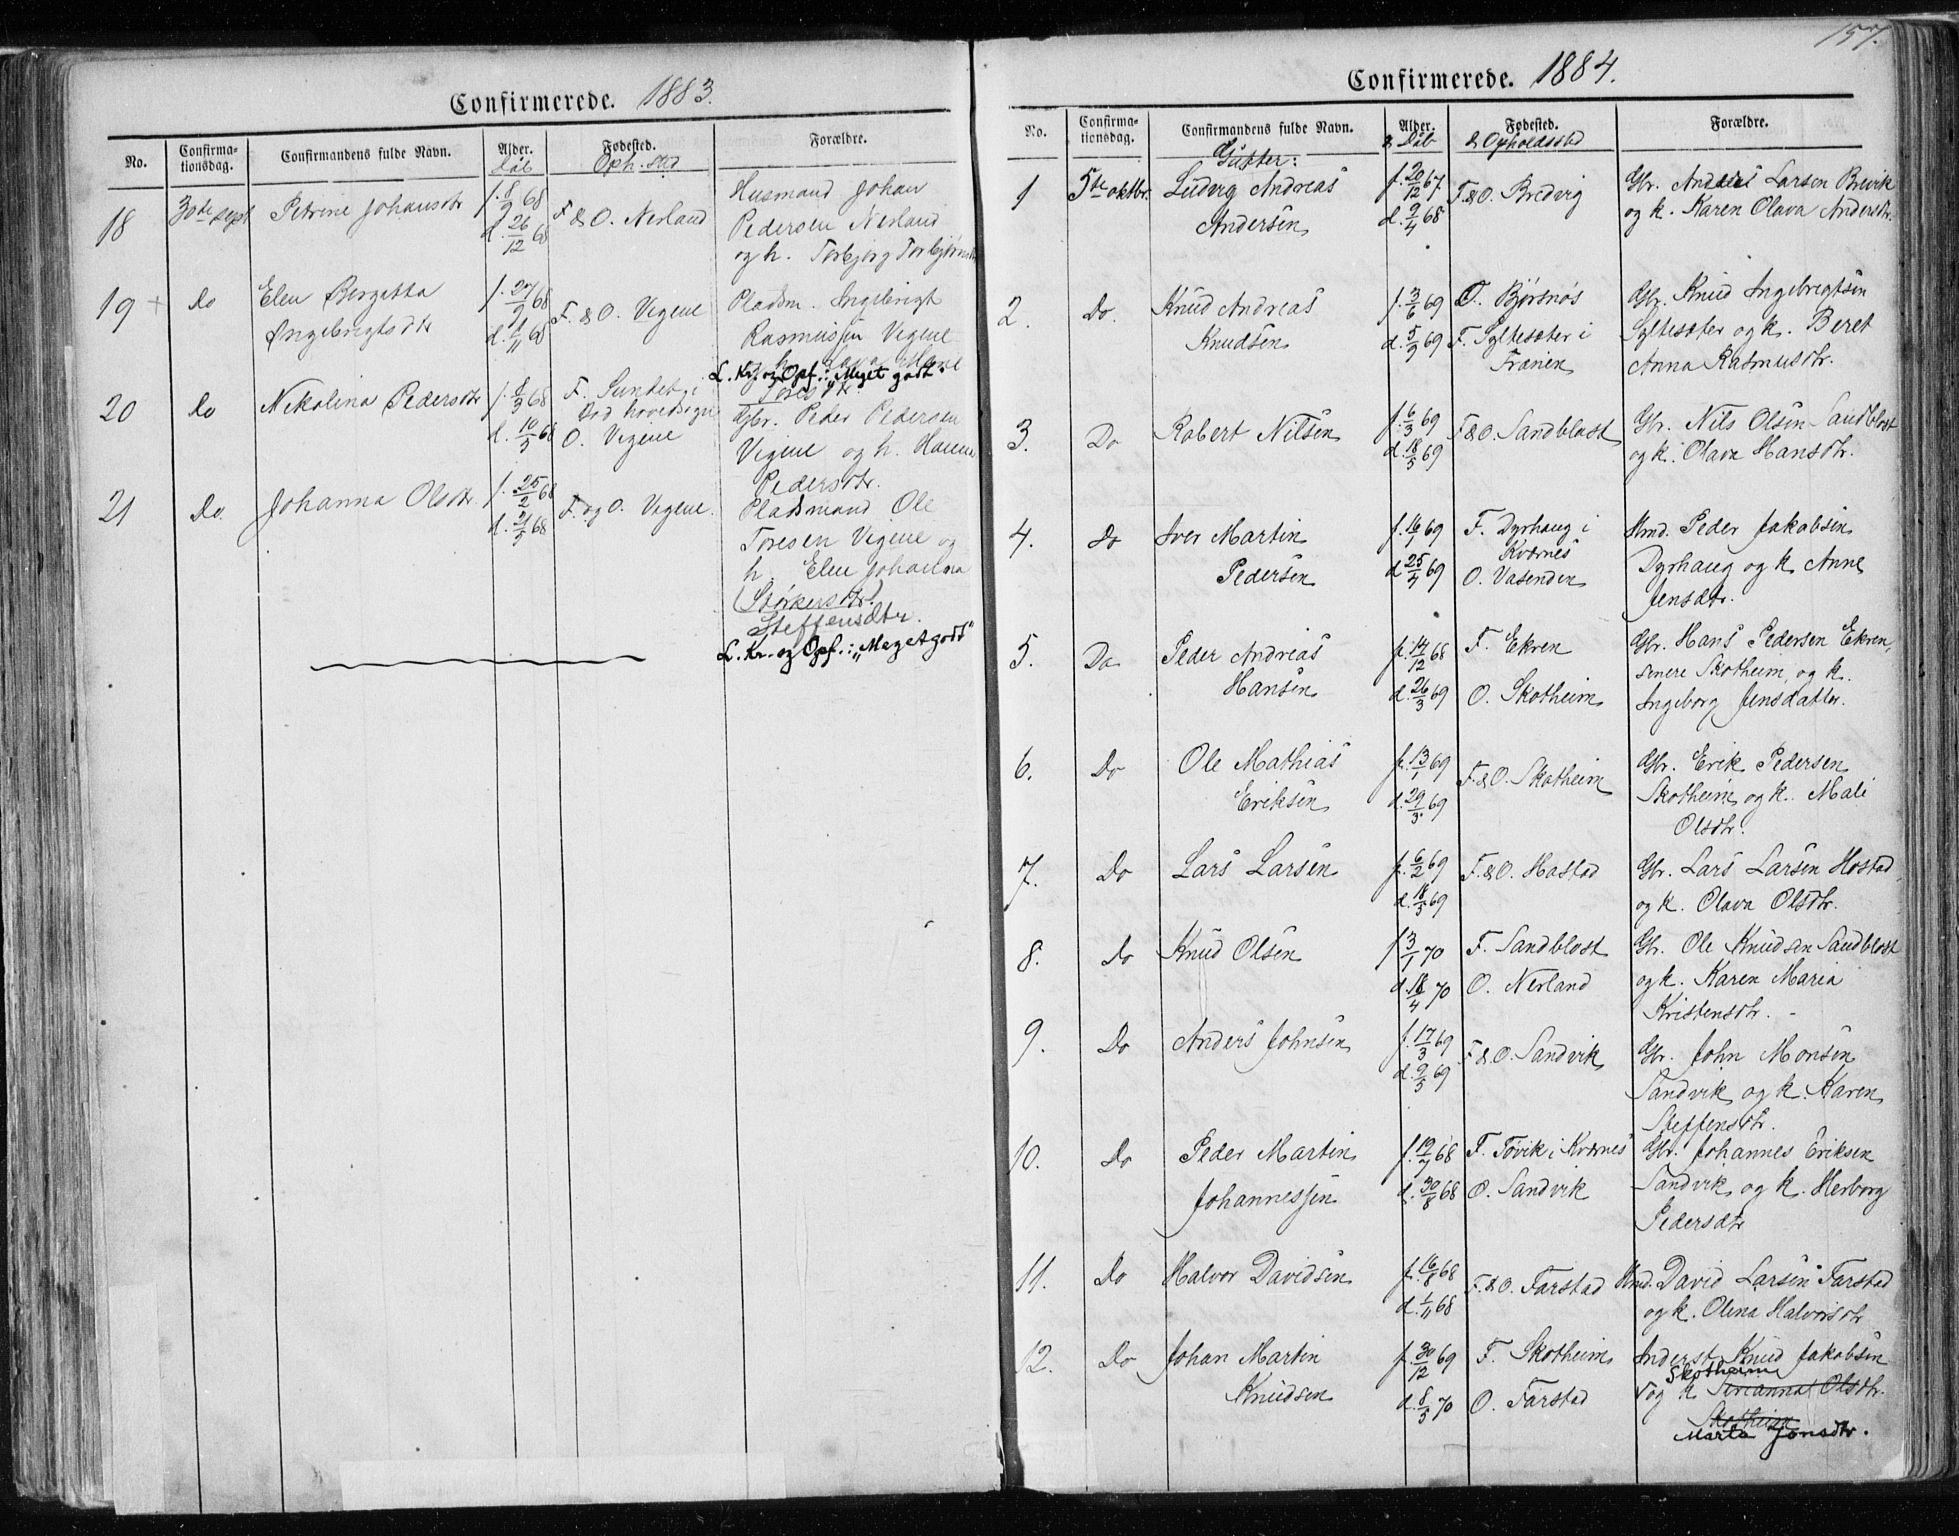 Confirmerede. 1883.
No.
Confirma-
tionsdag.
Confirmandens fulde Navn.
Alder.
Dåb
Fødested.
Oph. sted
Forældre.
18
30te sept
Petrine Johansdtr
f. 8/9 68
d. 26/12 68
F & O. Nerland
Husmand Johan
Pedersen Nerland
og h. Torbjørg Torbjørnsdtr
19 +
Do
Elen Bergitta
Ingebrigtsdtr
f. 27/9 68
d. 1/11 68
F. & O. Vegene
Pladsm. Ingebrigt
Rasmussen Vegene
og h.
Toresdtr.
L. Kr. og Opf.: "Meget godt"
20
Do
Nikolina Pedersdtr
f. 8/3 68
d. 10/5 68
F. Sundet i
Bod hovedsogn
O. Vegene
Gbr. Peder Pedersen
Vegene og h. Hanna
Pedersdtr.
21
Do.
Johanna Olsdtr
f. 25/2 68
d. 21/5 68
F. og O. Vegene.
Pladsmand Ole
Toresen Vegene og
h. Elen Johanna
(Størkersdtr.)
Steffensdtr.
L. Kr. og Opf.: "Meget godt"
157.
Confirmerede. 1884.
No.
Confirma-
tionsdag.
Confirmandens fulde Navn.
Alder.
& Dåb
Fødested.
& Opholdssted
Forældre.
Gutter:
1
5te oktbr.
Ludvig Andreas
Andersen
f. 20/12 67
d. 9/4 68
F & O. Bredvig
Gbr. Anders Larsen Brevik
og k. Karen Olava Andersdtr.
2.
Do.
Knud Andreas
Knudsen
f. 3/6 69
d. 5/9 69
O. Bjørsnøs
F. Syltesæter i
Frænen
Gbr. Knud Ingebrigtsen
Syltesæter og k. Beret
Anna Rasmusdtr.
3.
Do
Robert Nilsen
f. 6/3 69
d. 18/3 69
F & O. Sandblost
Gbr. Nils Olsen Sandblost
og k. Olava Hansdtr.
4.
Do
Iver Martin
Pedersen
f. 16/1 69
d. 25/4 69
F. Dyrhaug i
Kvernes
O. Vasenden
Hmd. Peder Jakobsen
Dyrhaug og k. Anne
Jensdtr.
5.
Do
Peder Andreas
Hansen
f. 14/12 68
d. 26/3 69
F. Ekren
O. Skotheim
Gbr. Hans Pedersen Ekren,
senere Skotheim, og k.
Ingeborg Jensdatter.
6.
Do
Ole Mathias
Eriksen
f. 13/1 69
d. 29/3 69
F. & O. Skotheim
Gbr. Erik Pedersen
Skotheim og k. Mali
Olsdtr.
7.
Do
Lars Larsen
f. 6/2 69
d. 18/3 69
F. & O. Hostad
Gbr. Lars Larsen Hostad
og k. Olava Olsdtr.
8.
Do
Knud Olsen
f 3/1 70
d. 18/4 70
F. Sandblost
O. Nerland
Gbr. Ole Knudsen Sandblost
og k. Karen Maria
Kristensdtr. -
9.
Do
Anders Johnsen
f. 17/3 69
d. 9/5 69
F. & O. Sandvik
Gbr. John Monsen
Sandvik og k. Karen
Steffensdtr.
10.
Do
Peder Martin
Johannessen
f. 19/7 68
d. 30/8 68
F. Tøvik i Kvernes
O. Sandvik
Gbr. Johannes Eriksen
Sandvik og k. Herborg
Pedersdtr
11.
Do
Halvor Davidsen
f. 16/8 68
d. 1/11 68
F. & O. Farstad
Hmd. David Larsen Farstad
og k. Olina Halvorsdtr
12.
Do
Johan Martin
Knudsen
f. 30/12 69
d. 8/5 70
F. Skotheim
O. Farstad
Inderst Knud Jakobsen
Skotheim
og k Serianna Olsdtr.
Skotheim
Marta Jonsdtr.